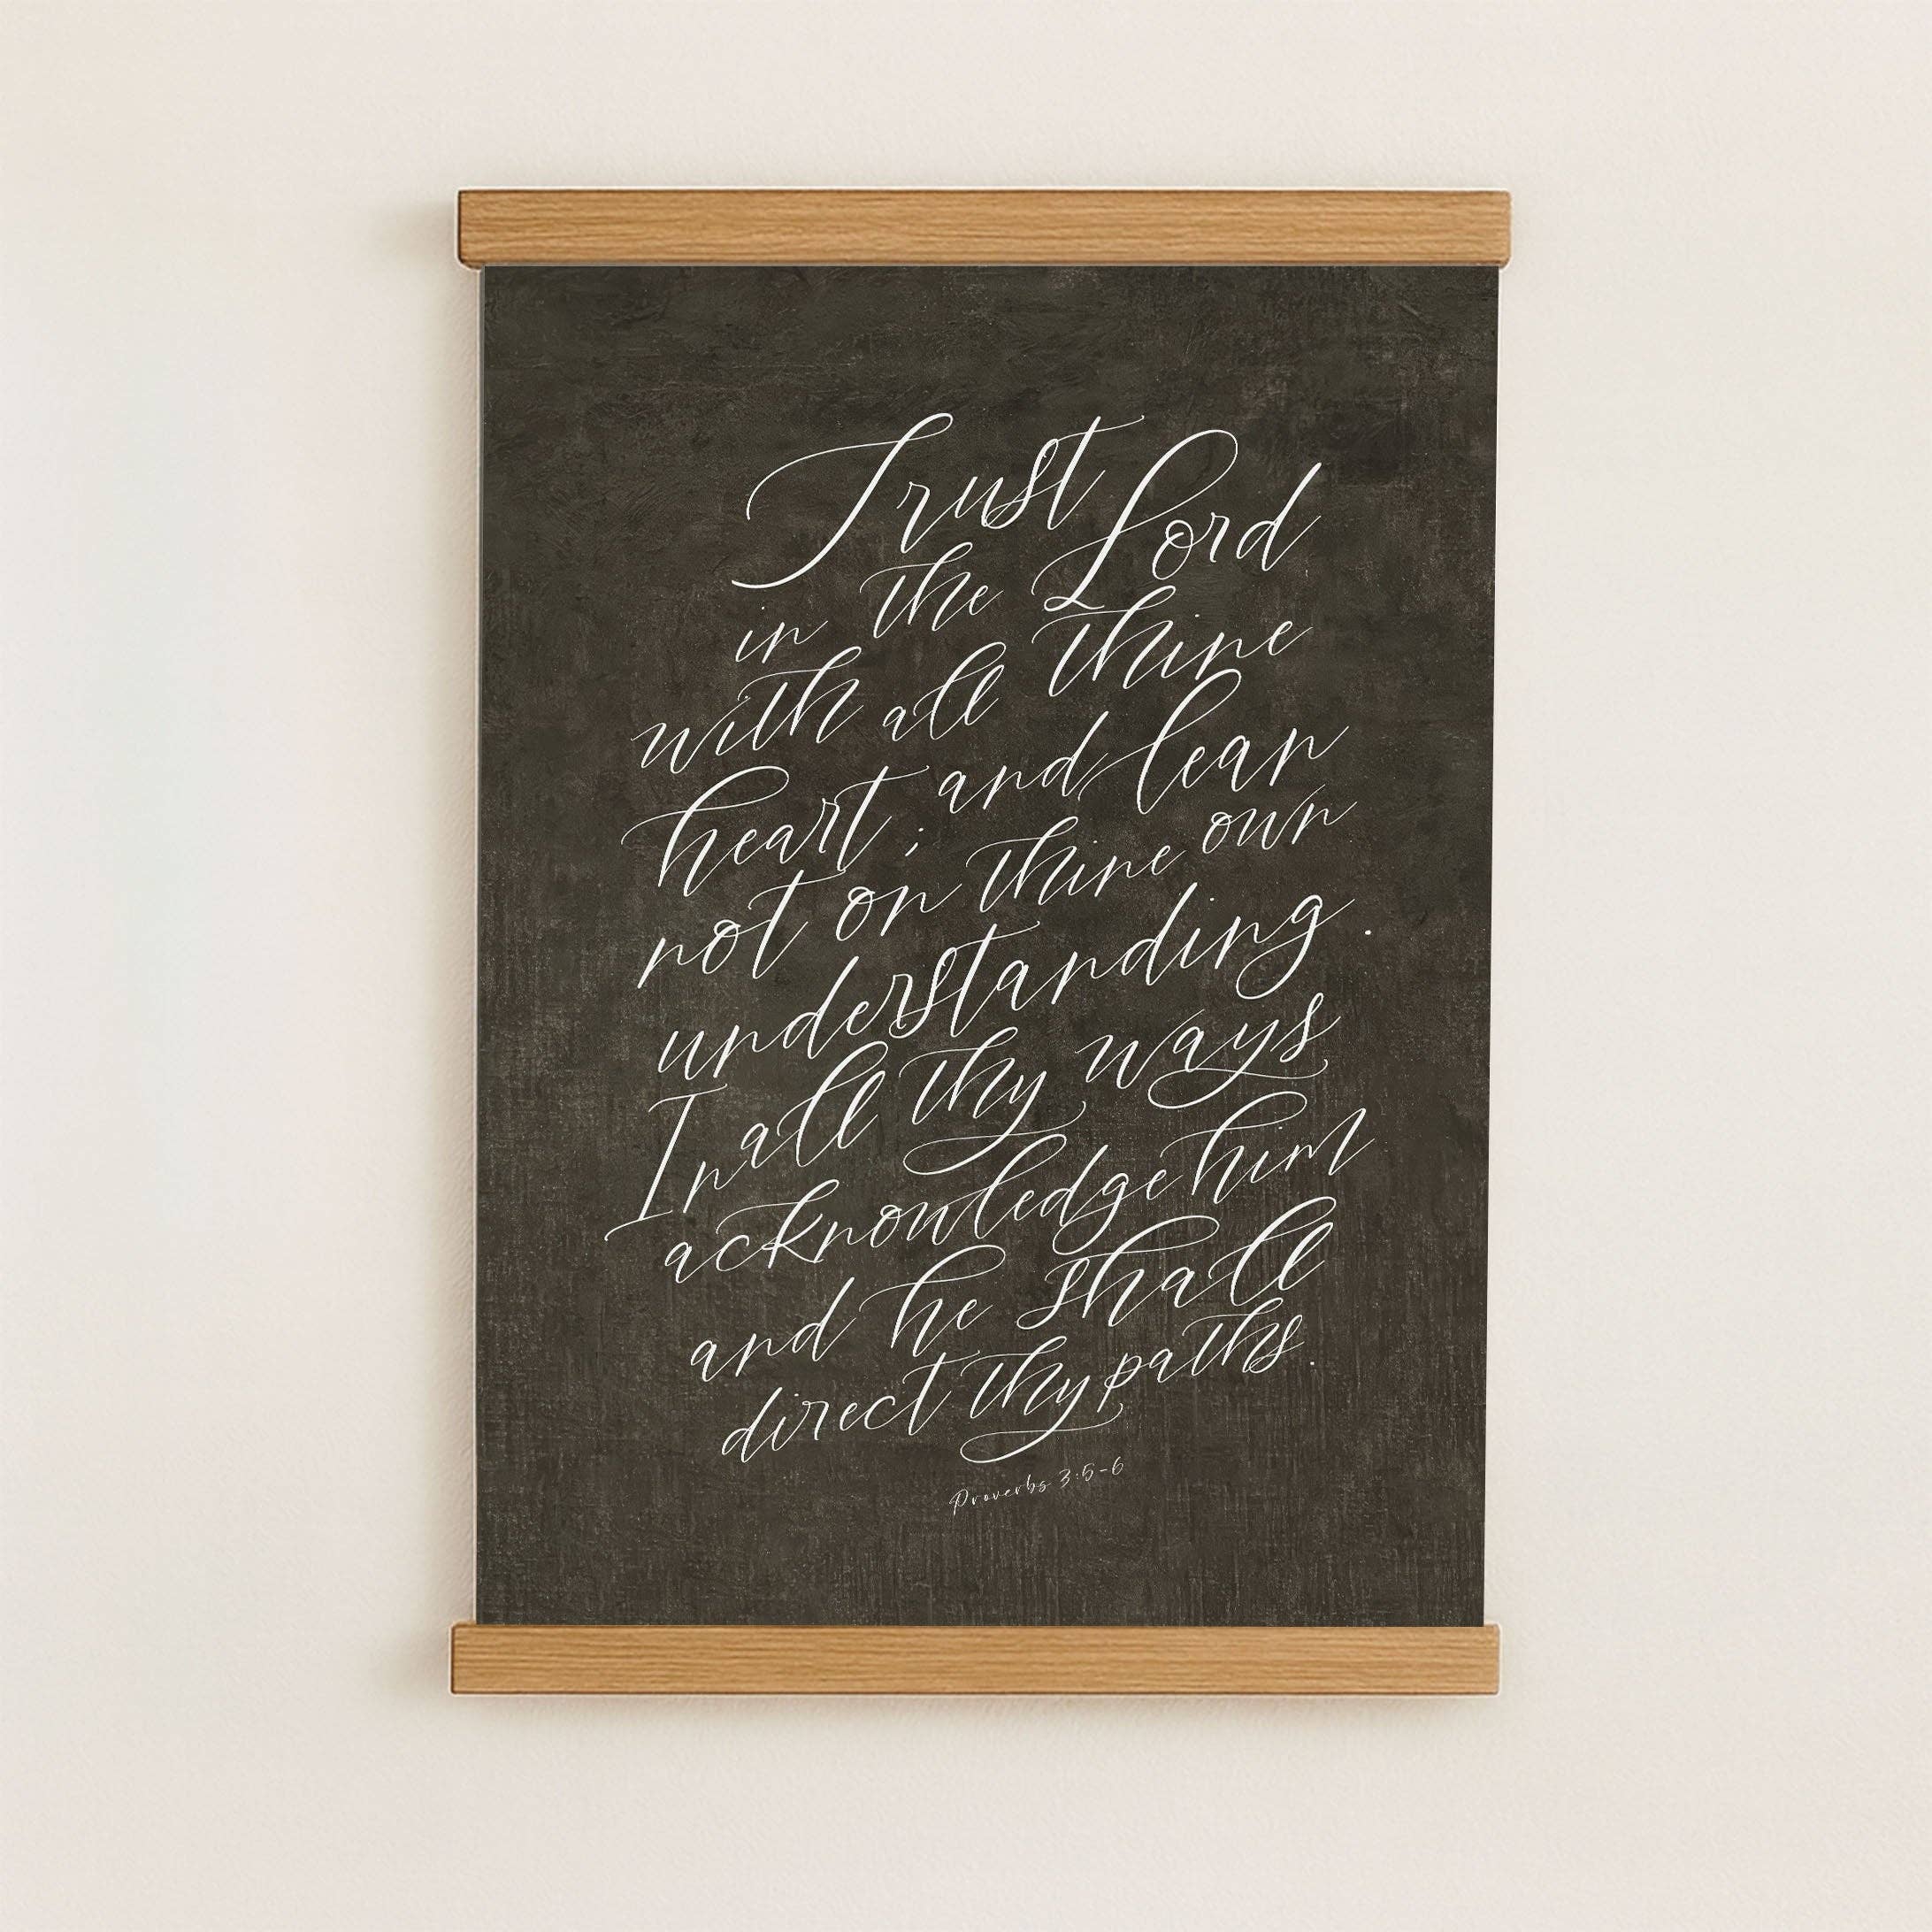 Trust Lord
in the
with all thine
heart; and lean
not on thine own
understanding.
In all thy ways
acknowledge him
and he shall
direct thy paths.
Proverbs 3:5-6